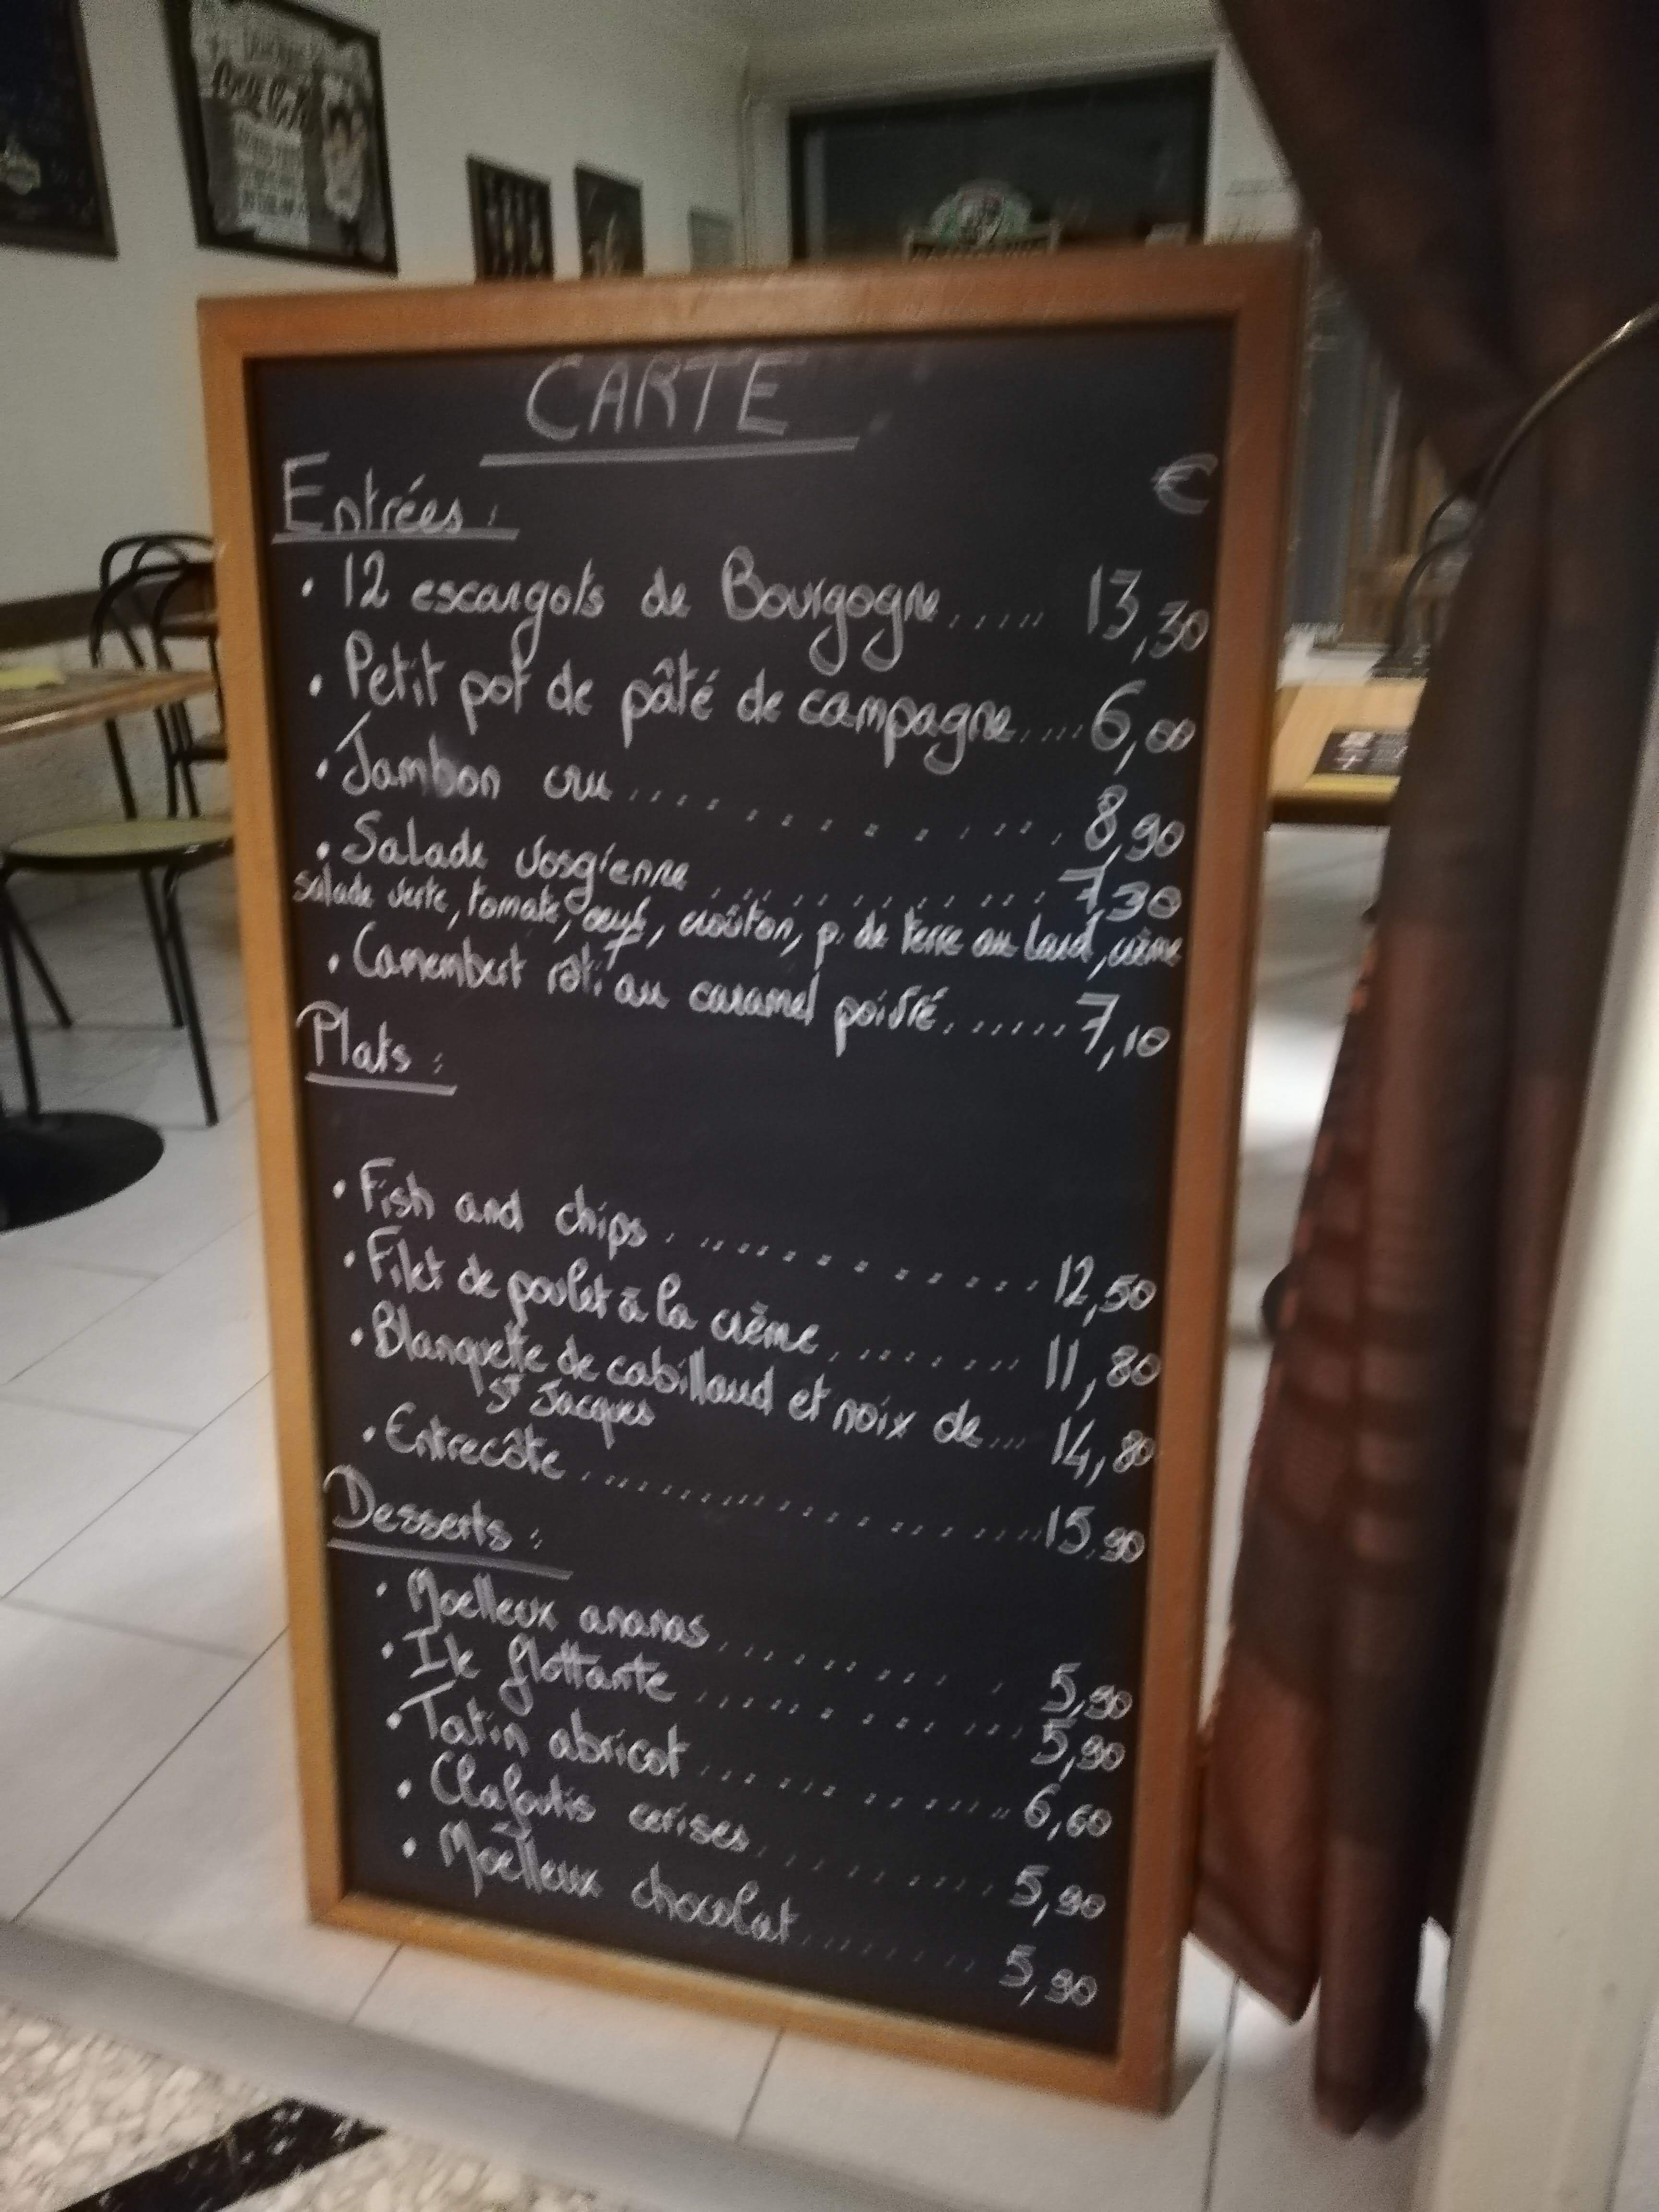 CARTE
€
Entrées :
• 12 escargots de Bourgogne...... 13,30
• Petit pot de pâté de campagne..... 6,00
• Jambon cru.............. 8,90
• Salade vosgienne.............. 7,30
salade verte, tomate, oeuf, croûton, p. de terre au lard, crème
• Camembert rôti au caramel poivré....... 7,10
Plats :
• Fish and chips............... 12,50
• Filet de poulet à la crème........ 11,80
• Blanquette de cabillaud et noix de... 14,80
St Jacques
• Entrecôte..................... 15,90
Desserts :
• Moelleux ananas........... 5,90
• Ile flottante.............. 5,90
• Tatin abricot.............. 6,60
• Clafoutis cerises........... 5,90
• Moëlleux chocolat......... 5,90